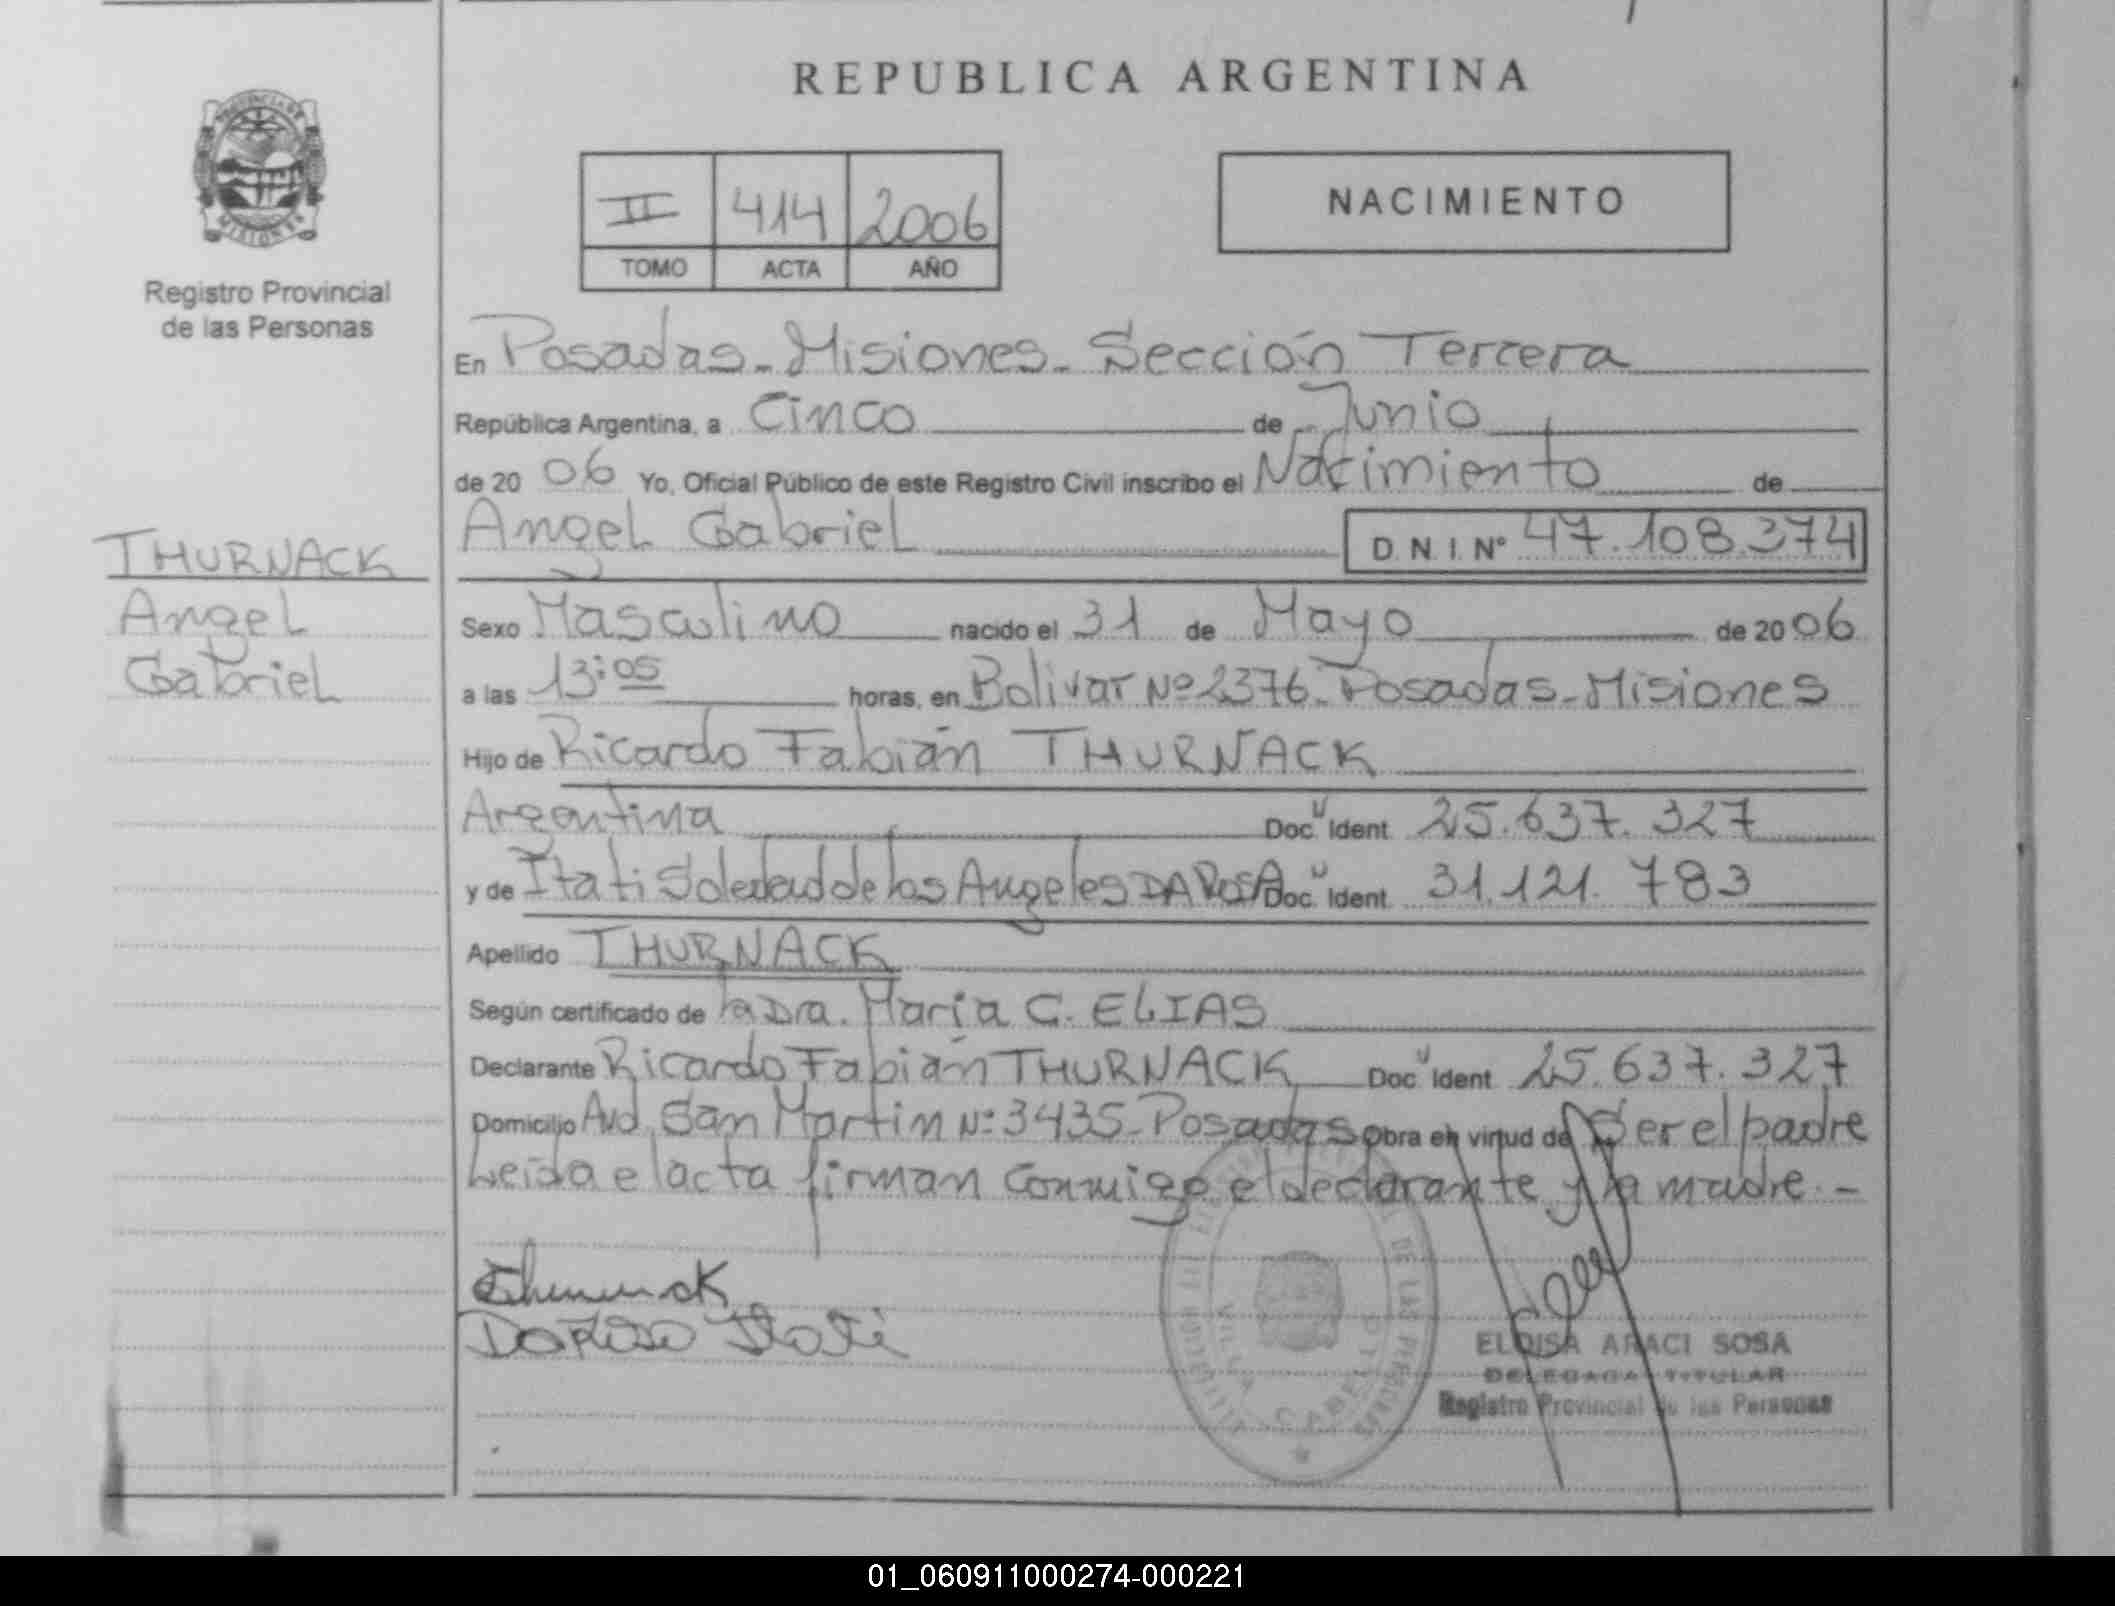 REPUBLICA ARGENTINA
PROVINCIA DE
MISIONES
Registro Provincial
de las Personas
II 414 2006
TOMO ACTA AÑO
NACIMIENTO
En Posadas - Misiones - Sección Tercera
República Argentina, a Cinco de Junio
de 20 06 Yo, Oficial Público de este Registro Civil inscribo el Nacimiento de
Angel Gabriel D.N.I. Nº 47.108.374
THURNACK
Angel
Gabriel
Sexo Masculino nacido el 31 de Mayo de 20 06
a las 13:05 horas, en Bolivar Nº 2376 - Posadas - Misiones
Hijo de Ricardo Fabián THURNACK
Argentina Doc. Ident. 25.637.327
y de Itati Soledad de los Angeles DA ROSA Doc. Ident. 31.121.783
Apellido THURNACK
Según certificado de la Dra. María C. ELIAS
Declarante Ricardo Fabián THURNACK Doc. Ident. 25.637.327
Domicilio Avd. San Martin Nº 3435 - Posadas Obra en virtud de Ser el padre
Leída el acta firman conmigo el declarante y la madre. -
Thurnack
Da Rosa Itati
DE LAS PERSONAS
VILLA CABELLO
ELOISA ARACI SOSA
DELEGADA TITULAR
Registro Provincial de las Personas
01_060911000274-000221